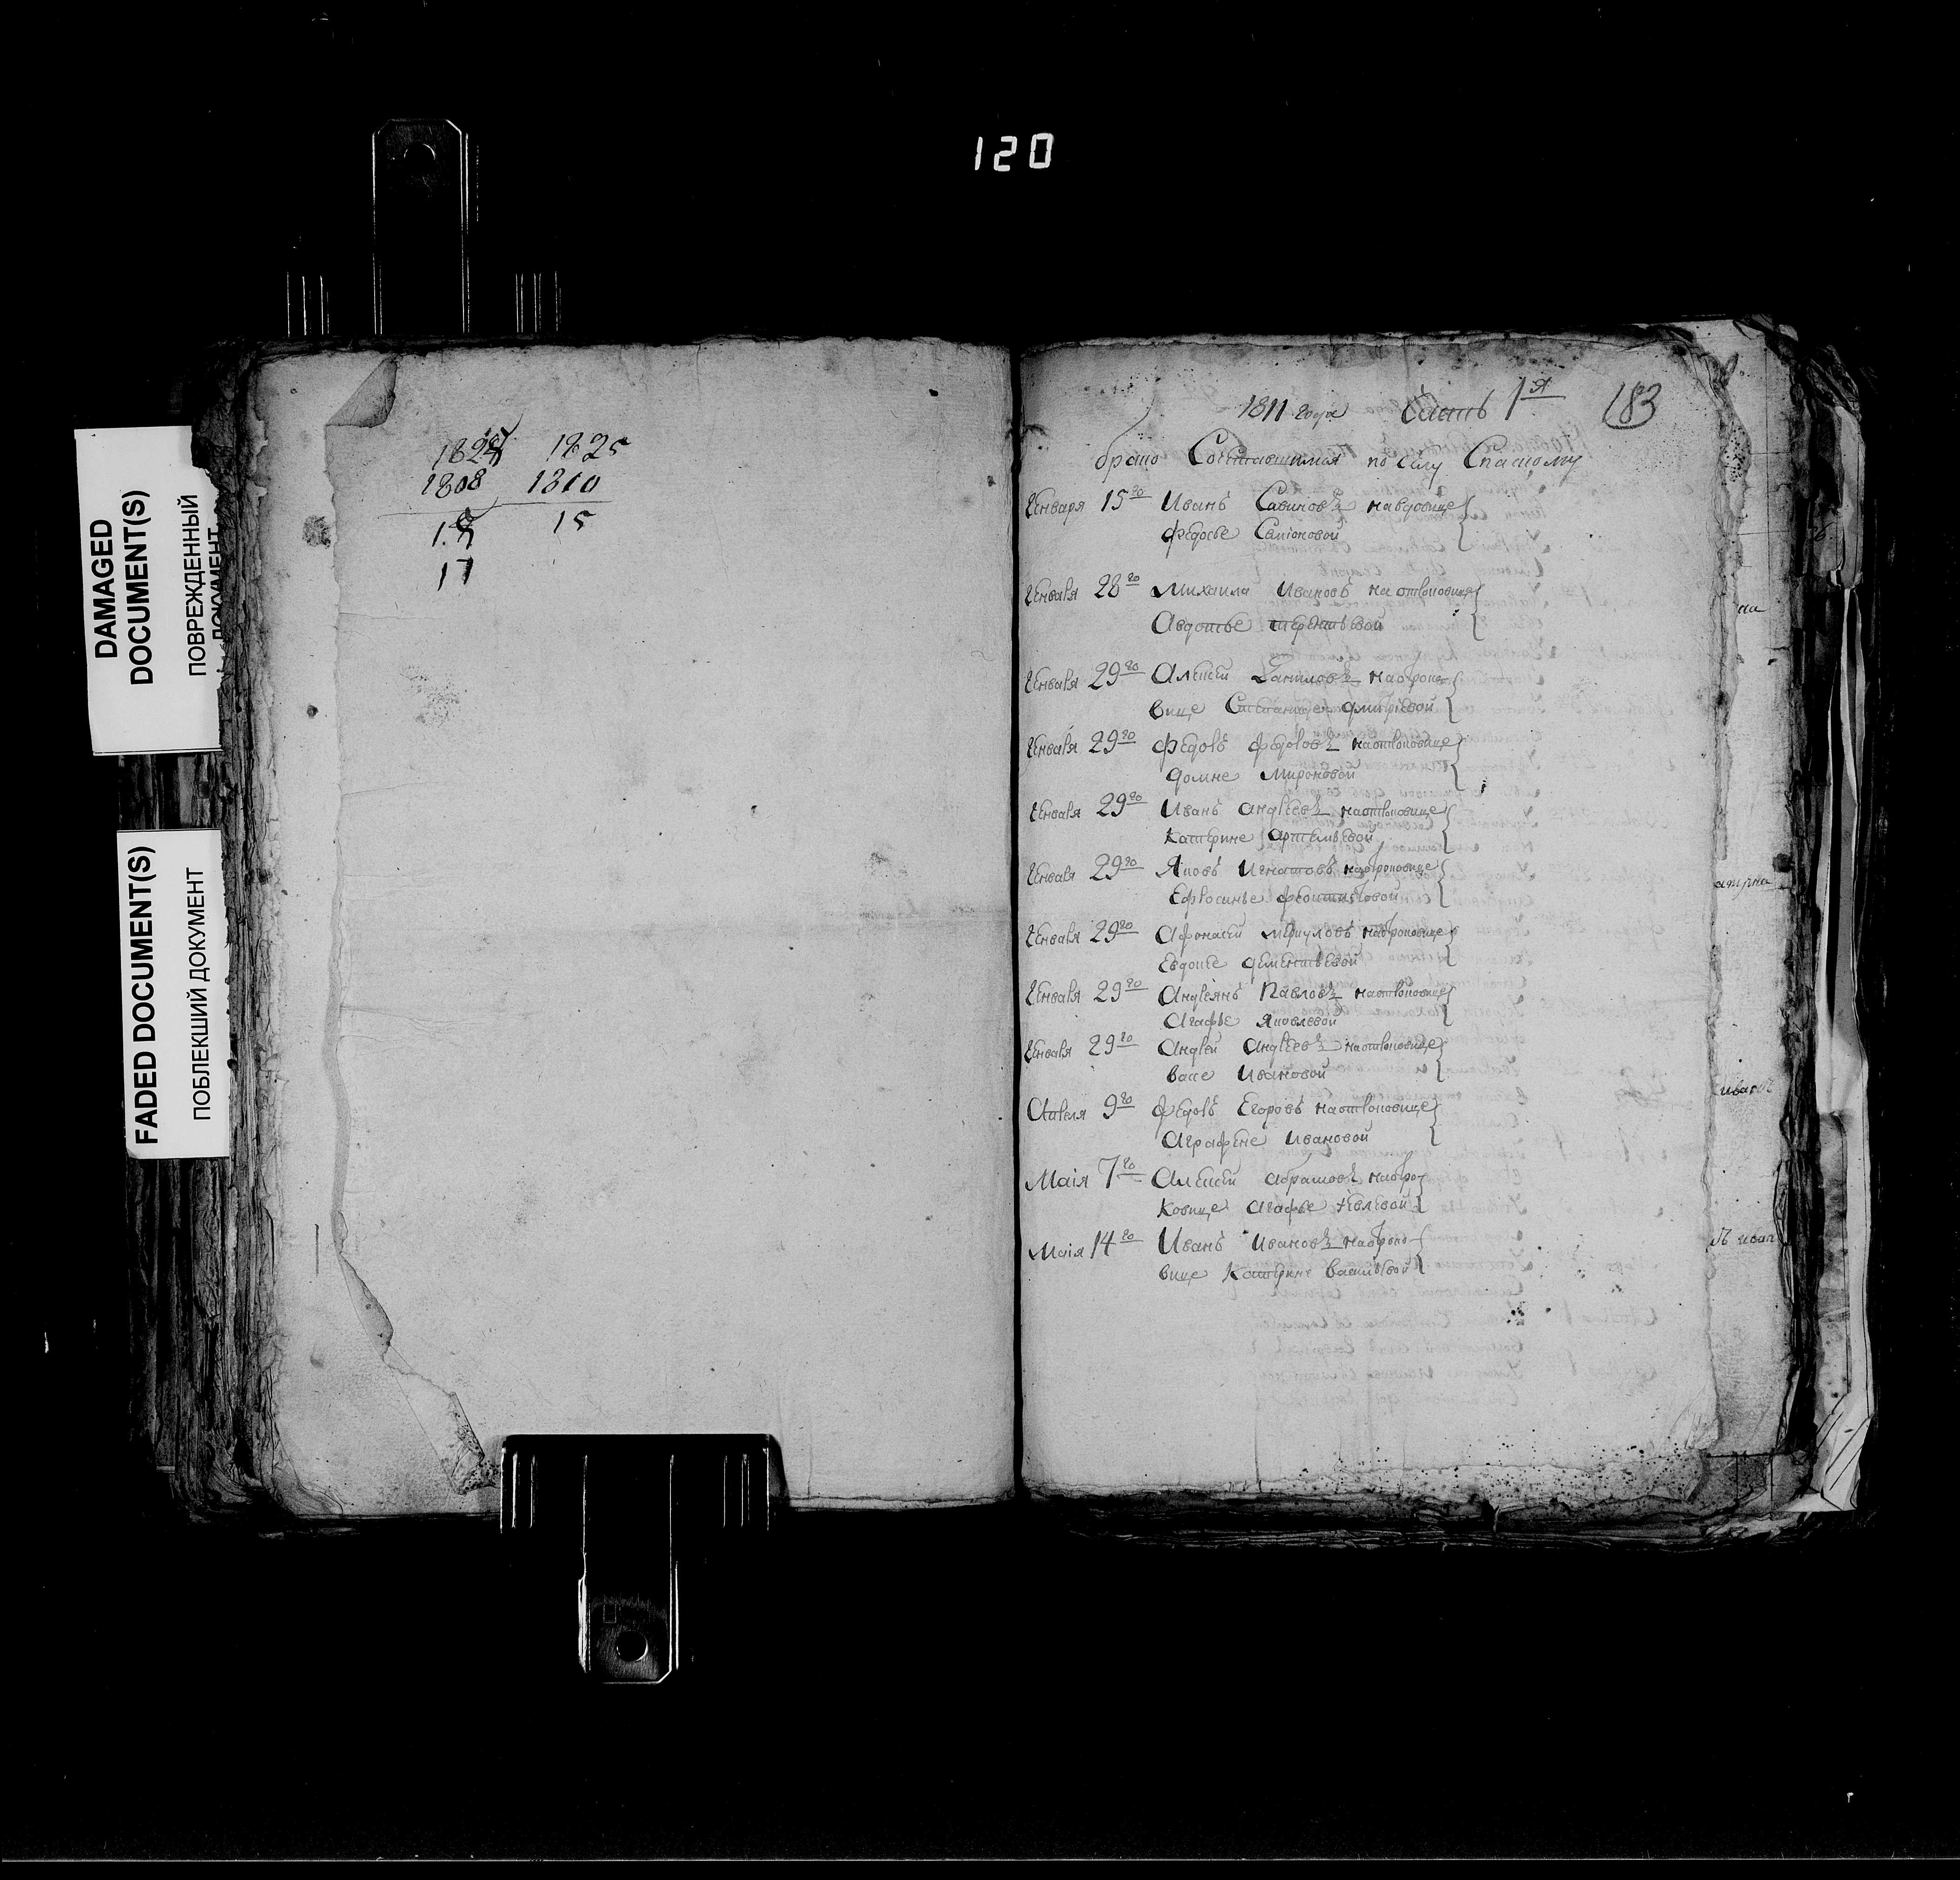 120
DAMAGED
DOCUMENT(S)
ПОВРЕЖДЕННЫЙ
ДОКУМЕНТ
FADED DOCUMENT(S)
ПОБЛЕКШИЙ ДОКУМЕНТ
1825 1825
1808 1810
15
17
1811 года Часть 1я 183
по Селу Спаскому
Генваря 15го Иванъ Савиновъ на вдовице
Федосье Семионовой
Генваря 28го Михаила Ивановъ на отроковице
Авдотье терентьевой
Генваря 29го Алексей Даниловъ на отроко
вице Степаниде дмитриевой
Генваря 29го Федоръ Федоровъ на отроковице
домне Мироновой
Генваря 29го Иванъ андреевъ на отроковице
Катерине артемьевой
Генваря 29го Яковъ Игнатовъ на отроковице
Ефросинье
Генваря 29го Афонасей на отроковице
Евдокее дементьевой
Генваря 29го Андреянъ Павловъ на отроковице
Агафье Яковлевой
Генваря 29го Андрей Андреевъ на отроковице
васе Ивановой
Апреля 9го Федоръ Егоровъ на отроковице
Аграфене Ивановой
Маія 7го Алексей абрамовъ на отро
ковице агафье
Маія 14го Иванъ Ивановъ на отроко
вице Катерине васильевой